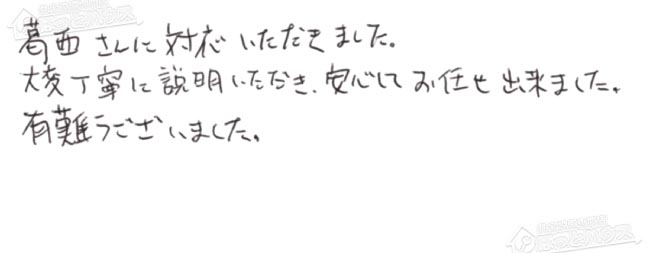 葛西さんに対応いただきました。
大変丁寧に説明いただき、安心してお任せ出来ました。
有難うございました。